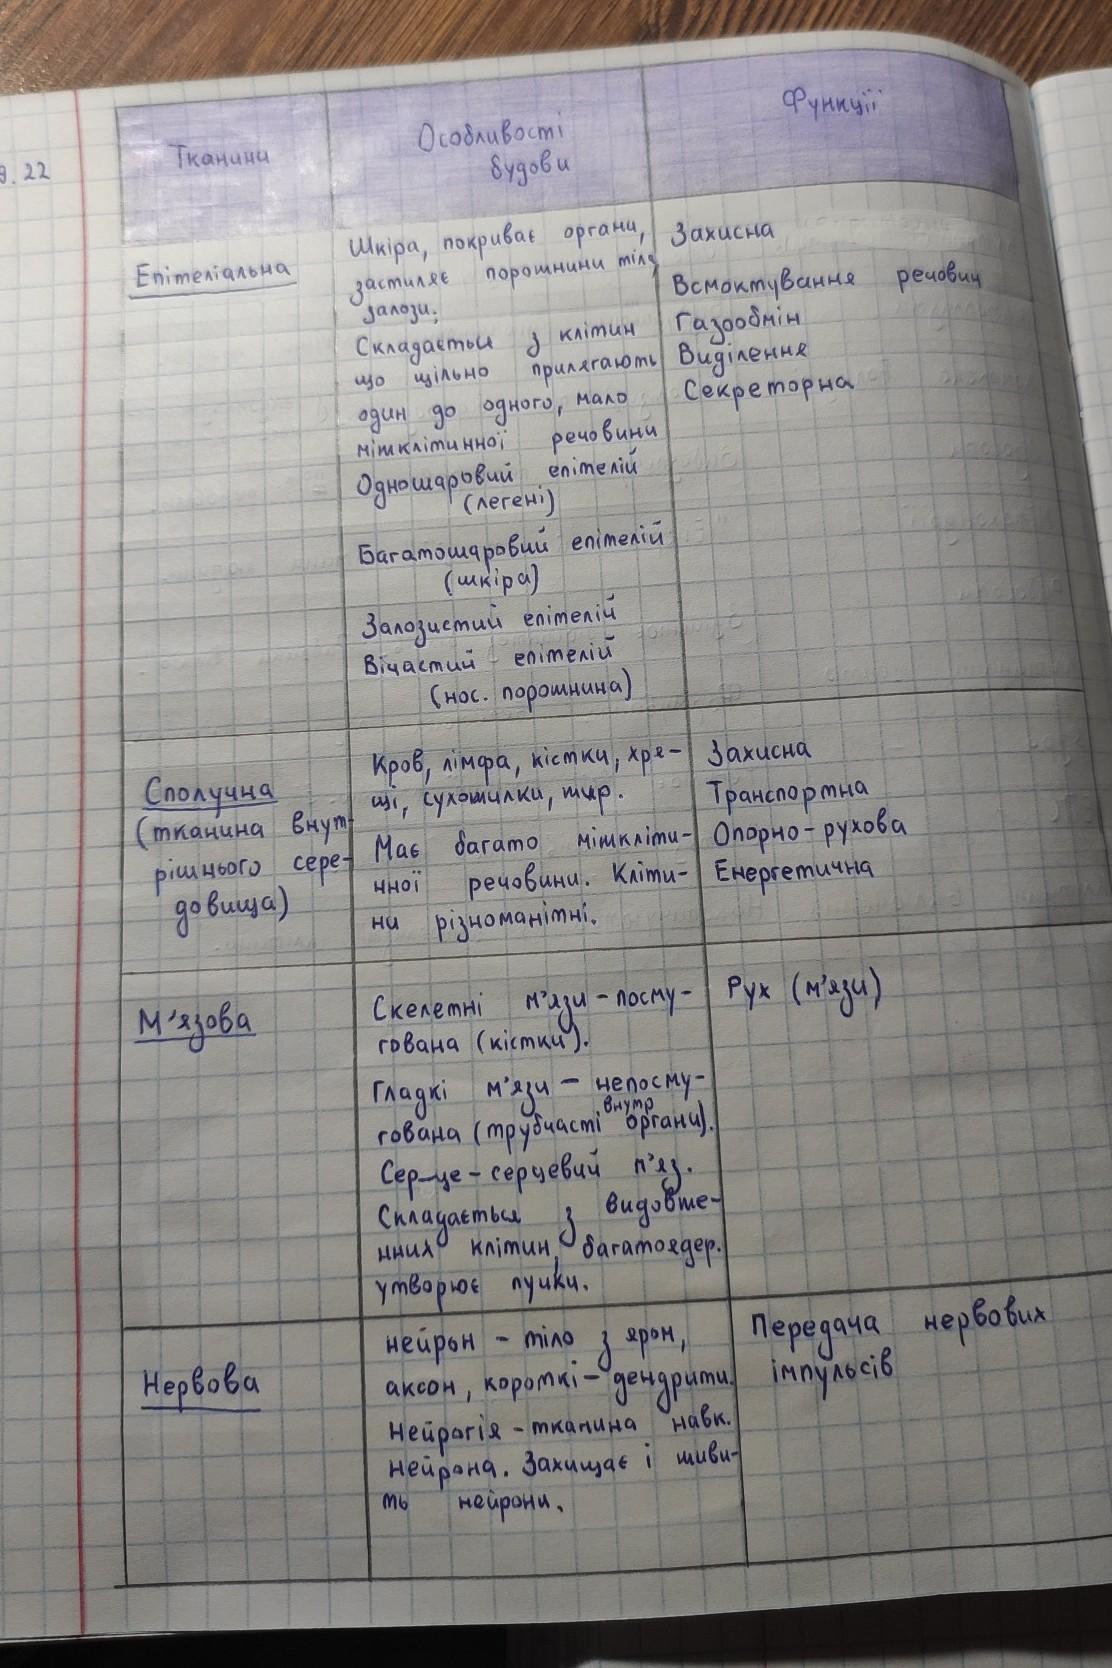 9.22
Тканини
Особливості
будови
Функції
Епітеліальна
Шкіра, покриває органи,
застиляє порожнини тіла,
залози.
Складається з клітин
що щільно прилягають
один до одного, мало
міжклітинної речовини
Одношаровий епітелій
(легені)
Багатошаровий епітелій
(шкіра)
Залозистий епітелій
Війчастий епітелій
(нос. порожнина)
Захисна
Всмоктування речовин
Газообмін
Виділення
Секреторна
Сполучна
(тканина внут-
рішнього сере-
довища)
Кров, лімфа, кістки, хря-
щі, сухожилки, жир.
Має багато міжкліти-
нної речовини. Кліти-
ни різноманітні.
Захисна
Транспортна
Опорно-рухова
Енергетична
М'язова
Скелетні м'язи - посму-
гована (кістки).
Гладкі м'язи - непосму-
гована (трубчасті внутр органи).
Сер-це - серцевий м'яз.
Складається з видовже-
нних клітин, багатоядер.
утворює пучки.
Рух (м'язи)
Нервова
нейрон - тіло з яром,
аксон, короткі - дендрити.
Нейрогія - тканина навк.
нейрона. Захищає і живи-
ть нейрони.
Передача нервових
імпульсів